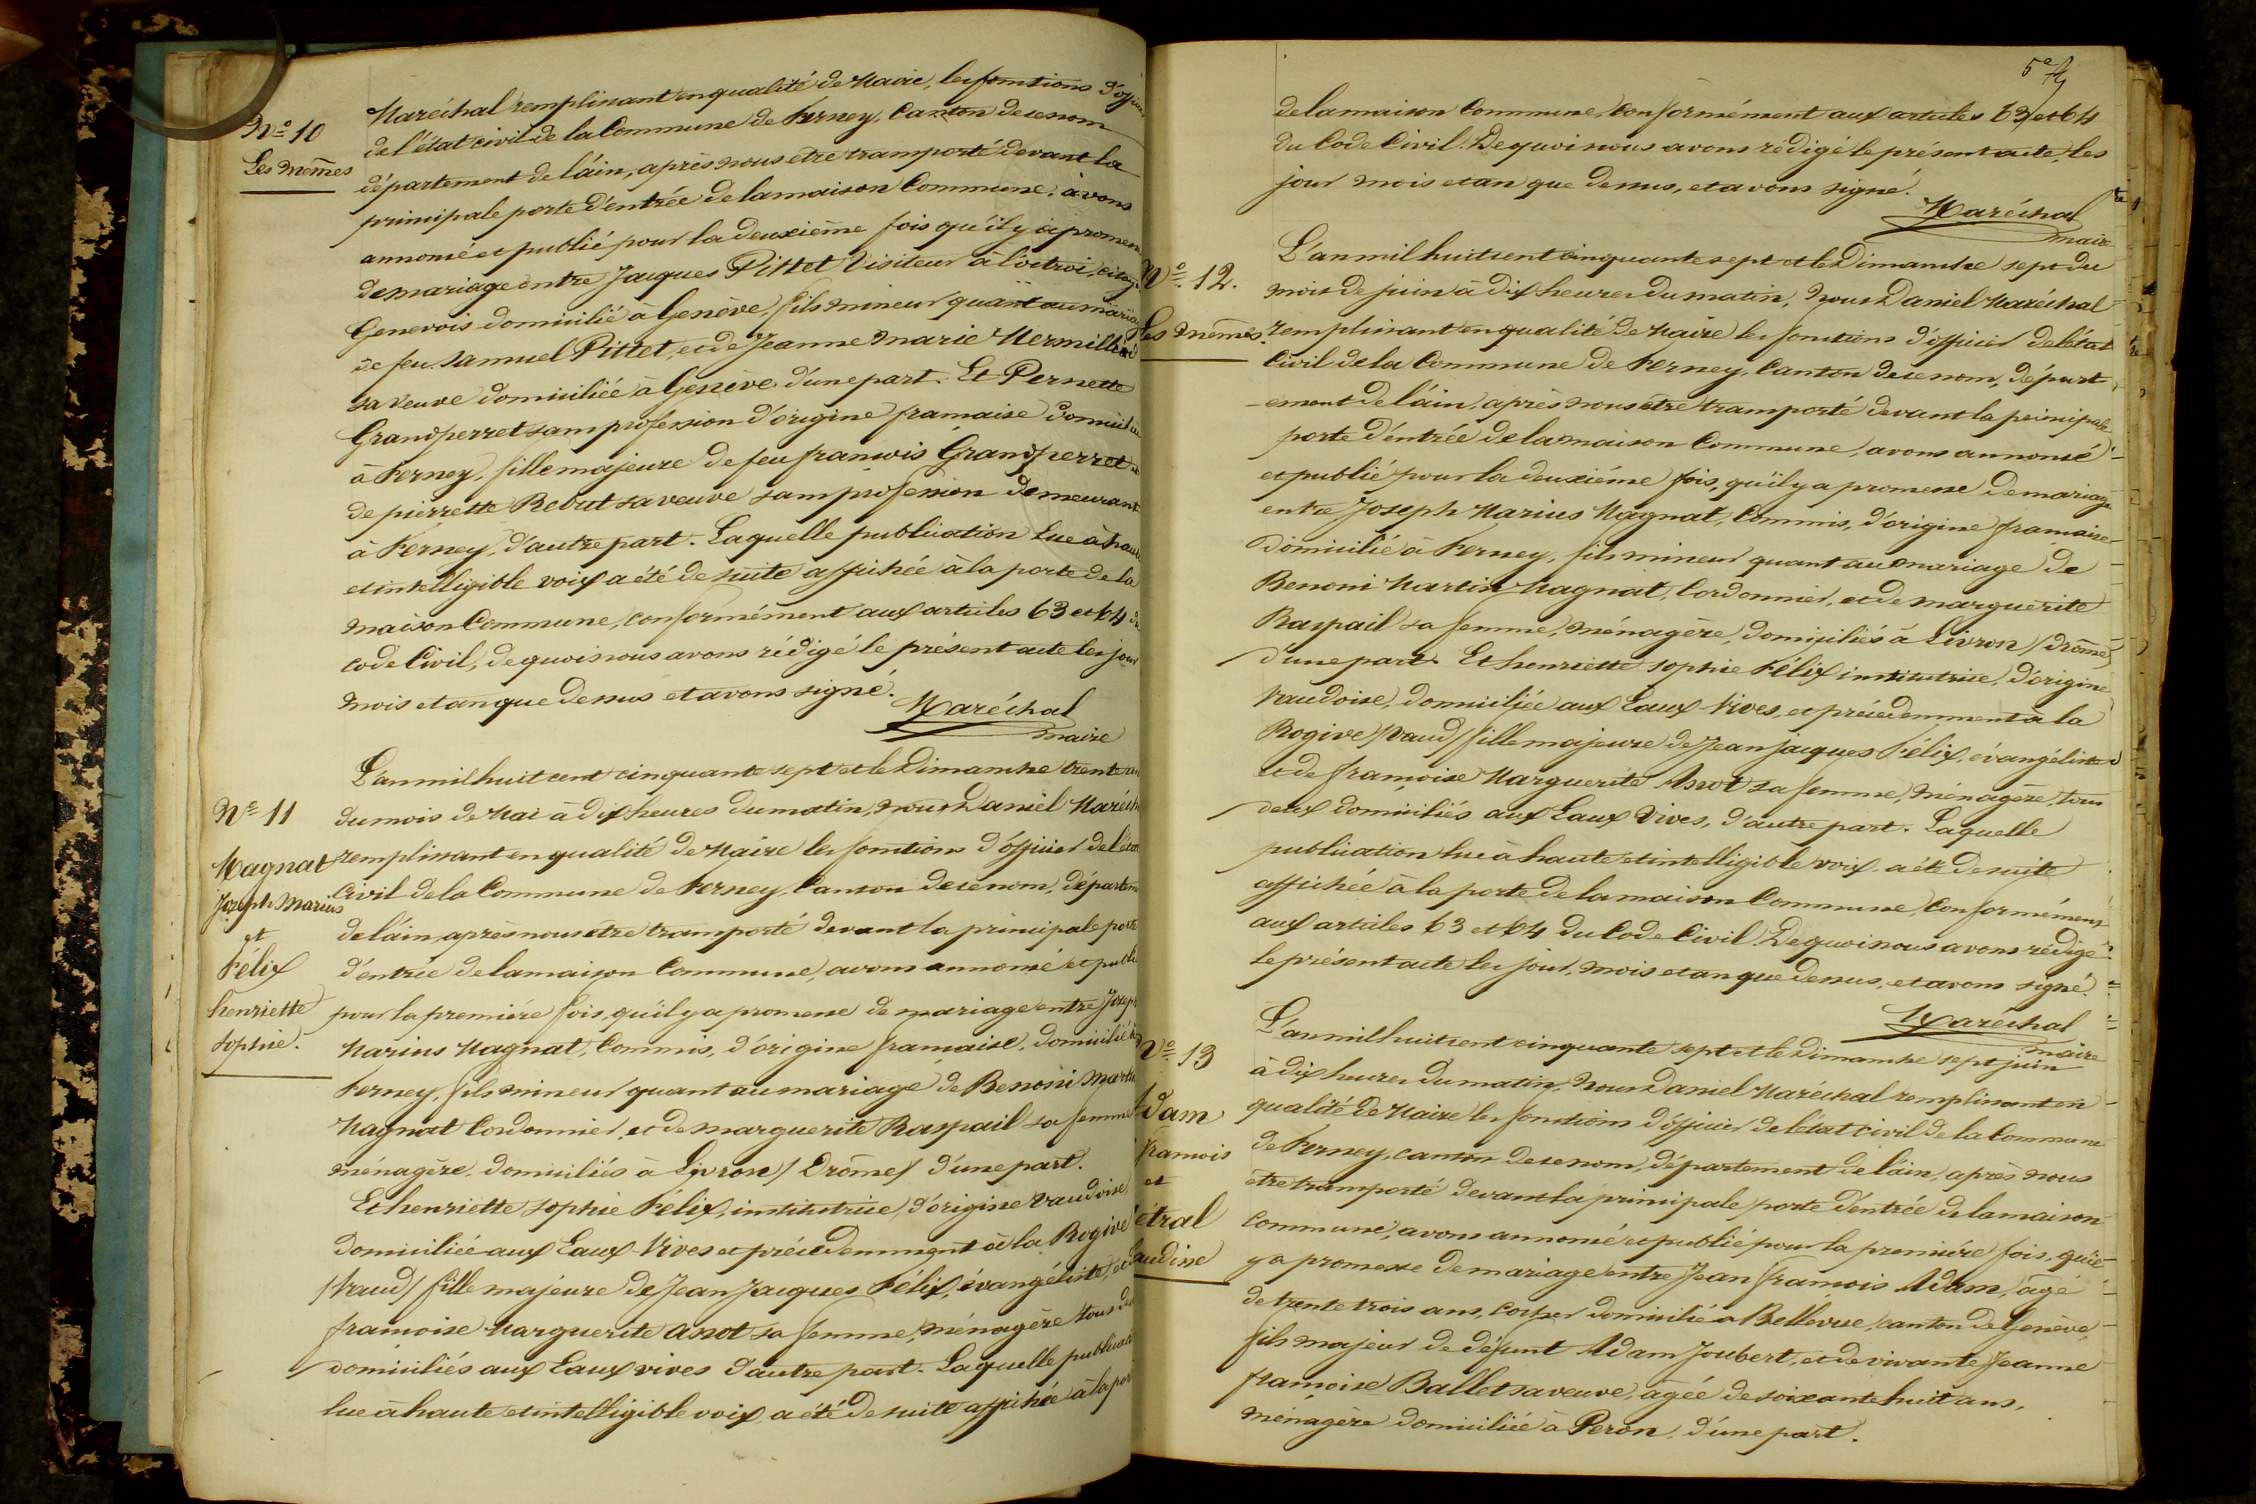 N° 10
Les mêmes
Maréchal remplissant en qualité de Maire, les fonctions d'offi
de l'état civil de la Commune de Ferney, Canton de ce nom
département de l'ain, après nous être transporté devant la
principale porte d'entrée de la maison Commune, avons
annoncé et publié pour la deuxième fois qu'il y a promesse
de mariage entre Jacques Pittet Visiteur à l'octroi, citoyen
Genevois domicilié à Genève, fils mineur quant au mariage
de feu Samuel Pittet, et de Jeanne Marie Mermillod
sa veuve domiciliée à Genève d'une part. Et Pernette
Grandperret sans profession d'origine française domiciliée
à Ferney, fille majeure de feu françois Grandperret et
de pierrette Rebut sa veuve sans profession demeurant
à Ferney, d'autre part. Laquelle publication lue à haute
et intelligible voix a été de suite affichée à la porte de la
maison Commune, conformément aux articles 63 et 64 du
code Civil, de quoi nous avons rédigé le présent acte les jour
mois et an que dessus et avons signé.
Maréchal
maire
N° 11
Magnat
Joseph Marius
et
Félix
henriette
sophie.
L'an mil huit cent cinquante sept et le Dimanche trente un
du mois de Mai à dix heures du matin, nous Daniel Maréchal
remplissant en qualité de Maire les fonctions d'officier de l'état
civil de la Commune de Ferney, Canton de ce nom, départem
de l'ain, après nous être transporté devant la principale porte
d'entrée de la maison Commune, avons annoncé et publié
pour la première fois, qu'il y a promesse de mariage entre Joseph
Marius Magnat, Commis, d'origine française, domicilié à
Ferney, fils mineur quant au mariage de Benoni Martin
Magnat Cordonnier, et de marguerite Raspail sa femme
ménagère, domiciliés à Livron / Drôme / d'une part.
Et henriette sophie Félix, institutrice, d'origine vaudoise,
domiciliée aux Eaux-Vives et précédemment à la Rogive
/ Vaud / fille majeure de Jean Jacques Félix, évangéliste, et
françoise Marguerite Assot sa femme, ménagère tous deux
domiciliés aux Eaux vives d'autre part. Laquelle publication
lue à haute et intelligible voix, a été de suite affichée à la porte
5e
de la maison Commune, conformément aux articles 63 et 64
du Code Civil. De quoi nous avons rédigé le présent acte, les
jour mois et an que dessus, et avons signé.
Maréchal
maire
N° 12.
Les mêmes.
L'an mil huit cent cinquante sept et le Dimanche sept du
mois de juin à dix heures du matin, Nous Daniel Maréchal
remplissant en qualité de Maire les fonctions d'officier de l'état
Civil de la Commune de Ferney, Canton de ce nom, départ
-ement de l'ain, après nous être transporté devant la principale
porte d'entrée de la maison Commune, avons annoncé
et publié pour la deuxième fois, qu'il y a promesse de mariage
entre Joseph Marius Magnat, Commis, d'origine française
domicilié à Ferney, fils mineur quant au mariage de
Benoni Martin Magnat, Cordonnier, et de marguerite
Raspail sa femme, ménagère, domiciliés à Livron / Drôme /
d'une part. Et henriette sophie Félix institutrice, d'origine
Vaudoise, domiciliée aux Eaux Vives, et précédemment à la
Rogive / Vaud / fille majeure de Jean jacques Félix, évangéliste
et de françoise Marguerite Assot sa femme, ménagère, tous
deux domiciliés aux Eaux Vives, d'autre part. Laquelle
publication lue à haute et intelligible voix a été de suite
affichée à la porte de la maison Commune, Conformément
aux articles 63 et 64 du Code Civil. De quoi nous avons rédigé
le présent acte les jour, mois et an que dessus, et avons signé.
Maréchal
maire
N° 13
Adam
françois
et
étral
audine
L'an mil huit cent cinquante sept et le Dimanche sept juin
à dix heures du matin, Nous Daniel Maréchal remplissant en
qualité de Maire les fonctions d'officier de l'état civil de la Commune
de Ferney, canton de ce nom, département de l'ain, après nous
être transporté devant la principale porte d'entrée de la maison
Commune, avons annoncé et publié pour la première fois, qu'il
y a promesse de mariage entre Jean françois Adam, âgé
de trente trois ans, cocher domicilié à Bellevue, canton de Genève,
fils majeur de défunt Adam Joubert, et de vivante Jeanne
françoise Ballet sa veuve, âgée de soixante huit ans,
ménagère domiciliée à Peron, d'une part.